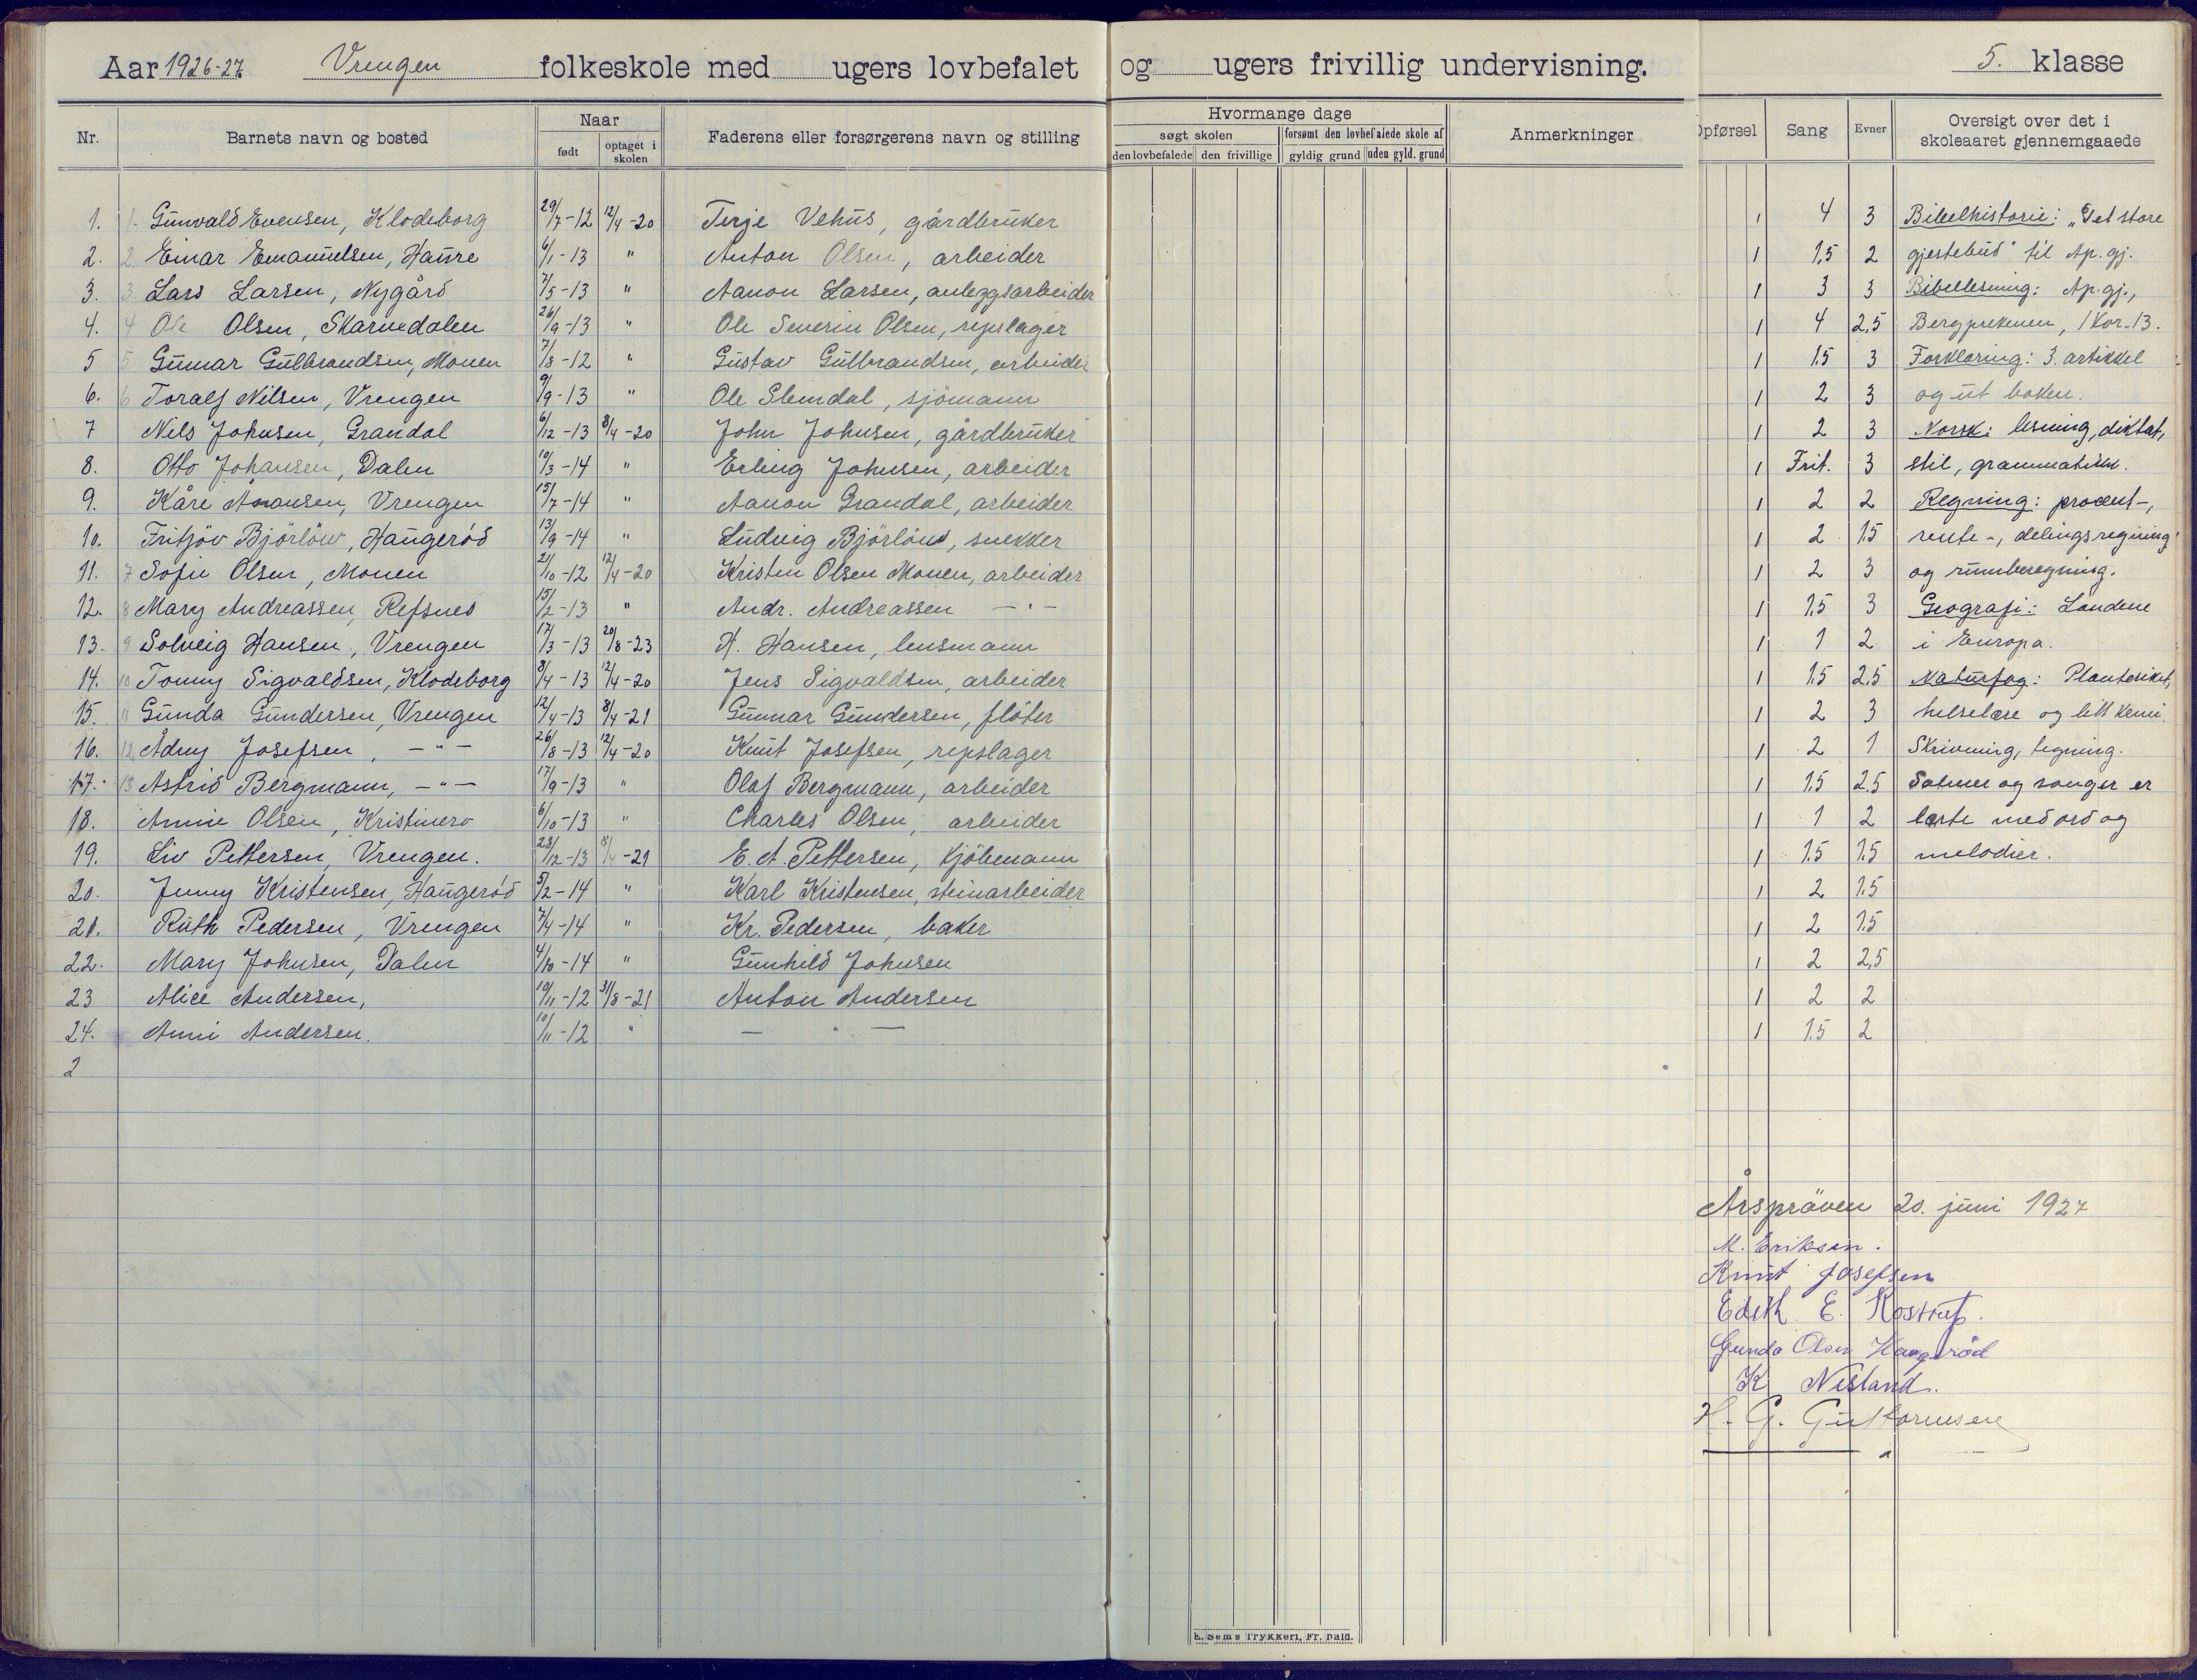 Aar 1926-27 Vrengen folkeskole med ugers lovbefalet og ugers frivillig undervisning. 5. klasse
Nr. Barnets navn og bosted Naar født optaget i skolen Faderens eller forsørgerens navn og stilling
Hvormange dage søgt skolen forsømt den lovbefalede skole af
den lovbefalede den frivillige gyldig grund uden gyld. grund
Anmerkninger Opførsel Sang Evner Oversigt over det i skoleaaret gjennemgaaede
1. 1. Gunvald Evensen, Klodeborg 29/7-12 12/4-20 Terje Vehus, gårdbruker 1 4 3 Bibelhistorie: „Det store
2. 2. Einar Emanuelsen, Haure 6/1-13 " Anton Olsen, arbeider 1 1,5 2 gjestebud" til Ap. gj.
3. 3. Lars Larsen, Nygård 7/5-13 " Aanon Larsen, anleggsarbeider 1 3 3 Bibellesning: Ap. gj.,
4. 4 Ole Olsen, Skarvedalen 26/9-13 " Ole Severin Olsen, repslager 1 4 2,5 Bergprekenen, 1 Kor. 13.
5 5 Gunnar Gulbrandsen, Monen 7/8-12 " Gustav Gulbrandsen, arbeider 1 1.5 3 Forklaring: 3. artikkel
6. 6 Toralf Nilsen, Vrengen 9/9-13 " Ole Slemdal, sjömann 1 2 3 og ut boken.
7 Nils Johnsen, Grandal 6/12-13 8/4-20 John Johnsen, gårdbruker 1 2 3 Norsk: lesning, diktat,
8. Otto Johansen, Dalen 10/3-14 " Erling Johnsen, arbeider 1 Frit. 3 stil, grammatikk.
9. Kåre Aanonsen, Vrengen 15/7-14 " Aanon Grandal, arbeider 1 2 2 Regning: procent-,
10. Fritjov Björlöw, Haugeröd 13/9-14 " Ludvig Björlöw, snekker 1 2 1.5 rente-, delingsregning
11. 7 Sofie Olsen, Monen 21/10-12 12/4-20 Kristen Olsen Monen, arbeider 1 2 3 og rumberegning.
12. 8 Mary Andreassen, Refsnes 15/2-13 " Andr. Andreassen — " — 1 1.5 3 Geografi: Landene
13. 9 Solveig Hansen, Vrengen 17/3-13 20/8-23 H. Hansen, lensmann 1 1 2 i Europa.
14. 10 Tommy Sigvaldsen, Klodeborg 8/4-13 12/4-20 Jens Sigvaldsen, arbeider 1 1.5 2,5 Naturfag: Planteriket,
15. 11 Gunda Gundersen, Vrengen 12/4-13 8/4-21 Gunnar Gundersen, flöter 1 2 3 helselære og litt kemi
16. 12 Ådny Josefsen, — " — 26/8-13 12/4-20 Knut Josefsen, repslager 1 2 1 Skrivning, tegning.
17. 13 Astrid Bergmann, — " — 17/9-13 " Olaf Bergmann, arbeider 1 1.5 2.5 Salmer og sanger er
18. Annie Olsen, Kristinero 6/10-13 " Charles Olsen, arbeider 1 1 2 lærte med ord og
19. Liv Pettersen, Vrengen. 28/12-13 8/4-21 E. A. Pettersen, kjöbmann 1 1.5 1.5 melodier.
20. Jenny Kristensen, Haugeröd 5/2-14 " Karl Kristensen, steinarbeider 1 2 1.5
21. Ruth Pedersen, Vrengen 7/4-14 " Kr. Pedersen, baker 1 2 1.5
22. Mary Johnsen, Dalen 4/10-14 " Gunhild Johnsen 1 2 2,5
23 Alice Andersen, 10/11-12 31/8-21 Anton Andersen 1 2 2
24. Anni Andersen. 10/11-12 " — " — 1 1.5 2
2
Årspröven 20. juni 1927
M. Eriksen.
Knut Josefsen
Edith E. Kostrup.
Gunda Olsen Haugeröd
K Nesland.
H. G. Guttormsen
E. Sem's Trykkeri, Fr. hald.